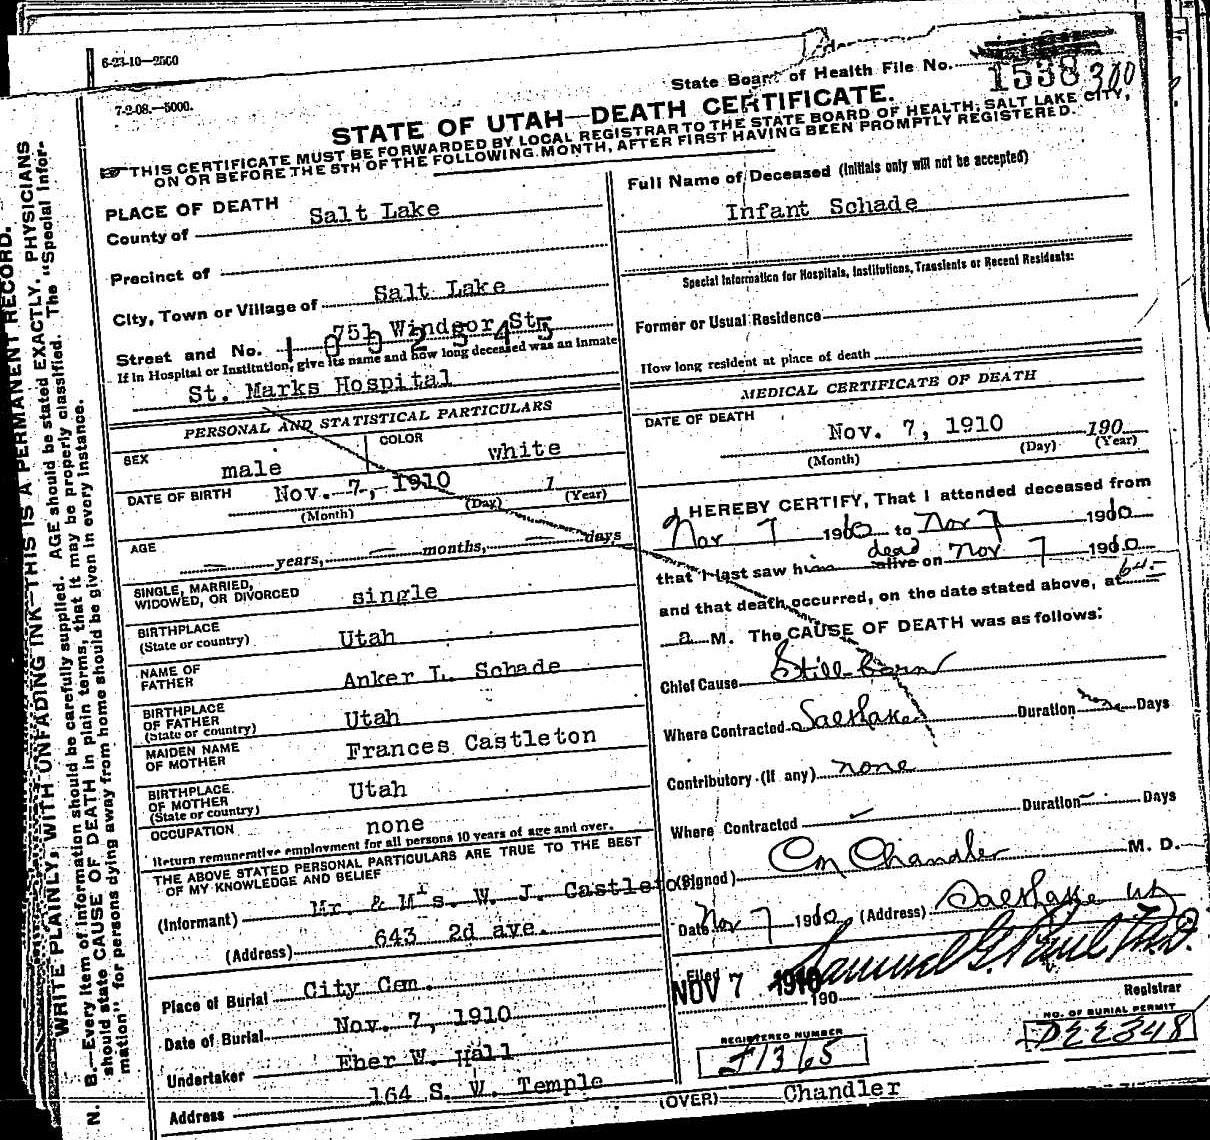 6-23-10—2500
7-2-08.—5000.
State Board of Health File No. 1538 300
STATE OF UTAH—DEATH CERTIFICATE.
THIS CERTIFICATE MUST BE FORWARDED BY LOCAL REGISTRAR TO THE STATE BOARD OF HEALTH, SALT LAKE CITY,
ON OR BEFORE THE 5TH OF THE FOLLOWING MONTH, AFTER FIRST HAVING BEEN PROMPTLY REGISTERED.
PLACE OF DEATH
County of Salt Lake
Precinct of
City, Town or Village of Salt Lake
Street and No. 751 Windsor St.
1002345
If in Hospital or Institution, give its name and how long deceased was an inmate
St. Marks Hospital
PERSONAL AND STATISTICAL PARTICULARS
SEX male
COLOR white
DATE OF BIRTH Nov. 7, 1910 1
(Month) (Day) (Year)
AGE — years, — months, — days
SINGLE, MARRIED,
WIDOWED, OR DIVORCED single
BIRTHPLACE
(State or country) Utah
NAME OF
FATHER Anker L. Schade
BIRTHPLACE
OF FATHER
(State or country) Utah
MAIDEN NAME
OF MOTHER Frances Castleton
BIRTHPLACE
OF MOTHER
(State or country) Utah
OCCUPATION none
Return remunerative employment for all persons 10 years of age and over.
THE ABOVE STATED PERSONAL PARTICULARS ARE TRUE TO THE BEST
OF MY KNOWLEDGE AND BELIEF
(Informant) Mr. & Mrs. W. J. Castleton
(Address) 643 2d ave.
Place of Burial City Cem.
Date of Burial Nov. 7, 1910
Undertaker Eber W. Hall
Address 164 S. W. Temple
Full Name of Deceased (Initials only will not be accepted)
Infant Schade
Special Information for Hospitals, Institutions, Transients or Recent Residents:
Former or Usual Residence
How long resident at place of death
MEDICAL CERTIFICATE OF DEATH
DATE OF DEATH
Nov. 7, 1910 190
(Month) (Day) (Year)
I HEREBY CERTIFY, That I attended deceased from
Nov 7 1910 to Nov 7 1910
that I last saw him dead alive on Nov 7 1910
and that death occurred, on the date stated above, at 645
a M. The CAUSE OF DEATH was as follows:
Chief Cause Still born
Where Contracted Saltlake Duration none Days
Contributory (If any) none
Where Contracted Duration — Days
(Signed) Cm Chandler M. D.
Date Nov 7 1910 (Address) Saltlake Ut
Filed NOV 7 1910 190 Samuel G. Paul M.D.
Registrar
REGISTERED NUMBER
F1365
NO. OF BURIAL PERMIT
D22348
(OVER) Chandler
WRITE PLAINLY, WITH UNFADING INK—THIS IS A PERMANENT RECORD.
N. B.—Every item of information should be carefully supplied. AGE should be stated EXACTLY. PHYSICIANS
should state CAUSE OF DEATH in plain terms, that it may be properly classified. The "Special Infor-
mation" for persons dying away from home should be given in every instance.